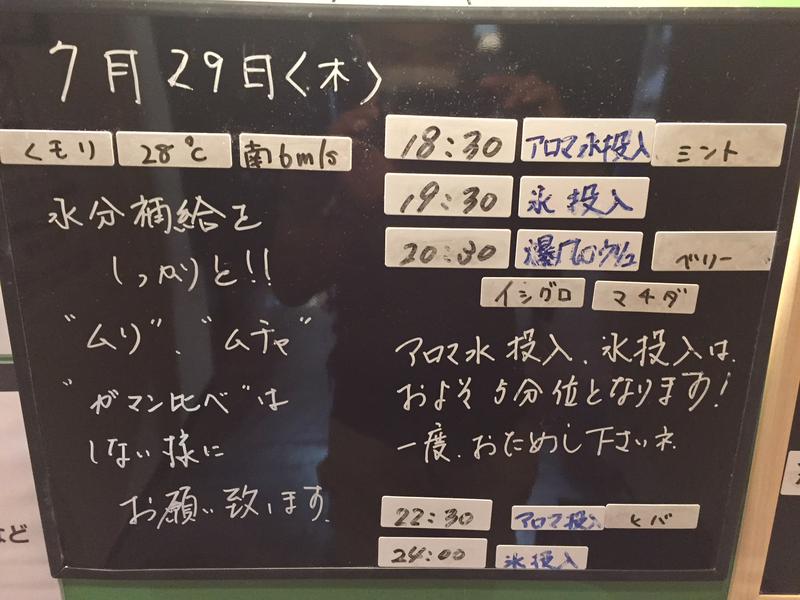 7月29日〈木〉
くモリ 28℃ 南6m/s
水分補給を
しっかりと!!
"ムリ"、"ムチャ"
"ガマン比べ"は
しない様に
お願い致します。
18:30 アロマ水投入 ミント
19:30 氷投入
20:30 爆風ロウリュ ベリー
イシグロ マチダ
アロマ水投入、氷投入は、
およそ5分位となります!
一度、おためし下さいネ。
22:30 アロマ投入 ヒバ
24:00 氷投入
など